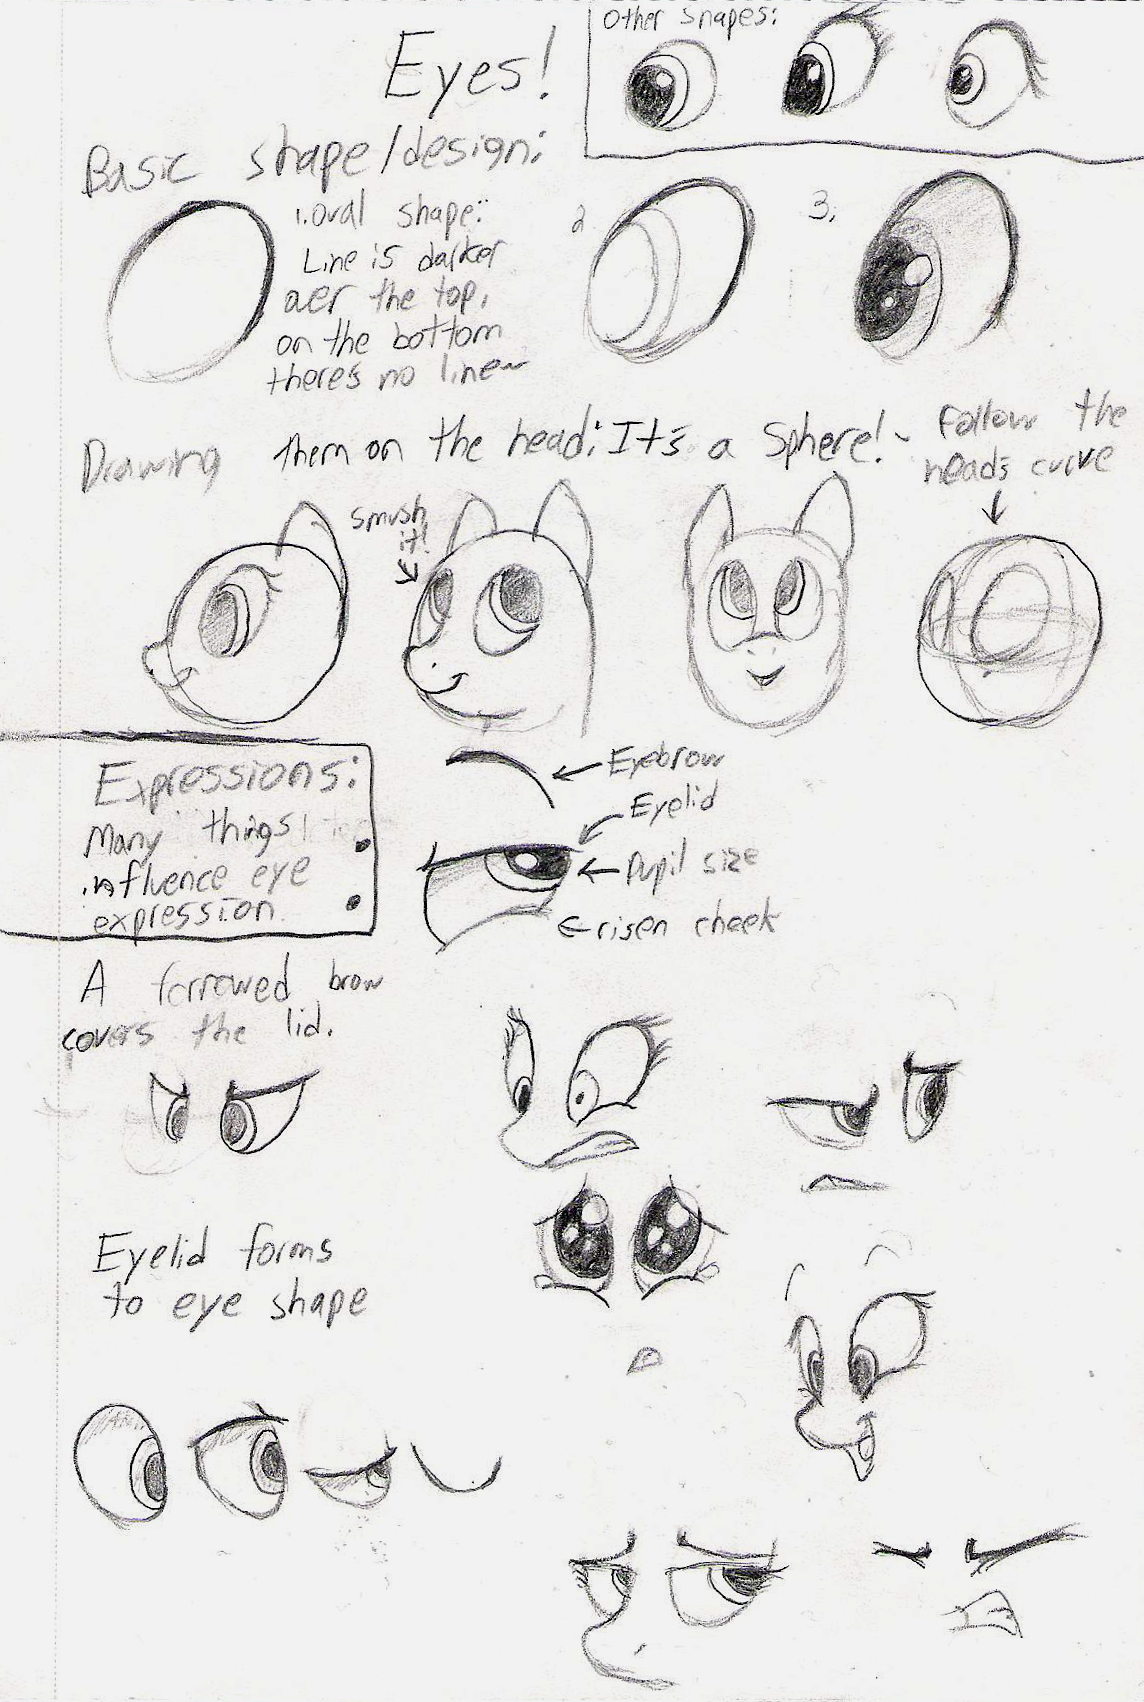 Eyes!
Other shapes:
Basic shape/design:
1. oval shape:
Line is darker
over the top,
on the bottom
there's no line~
2
3.
Drawing them on the head: It's a Sphere!~
Follow the
heads curve
smush
it!
Expressions:
Many things
influence eye
expression.
Eyebrow
Eyelid
Pupil size
risen cheek
A forrowed brow
covers the lid.
Eyelid forms
to eye shape